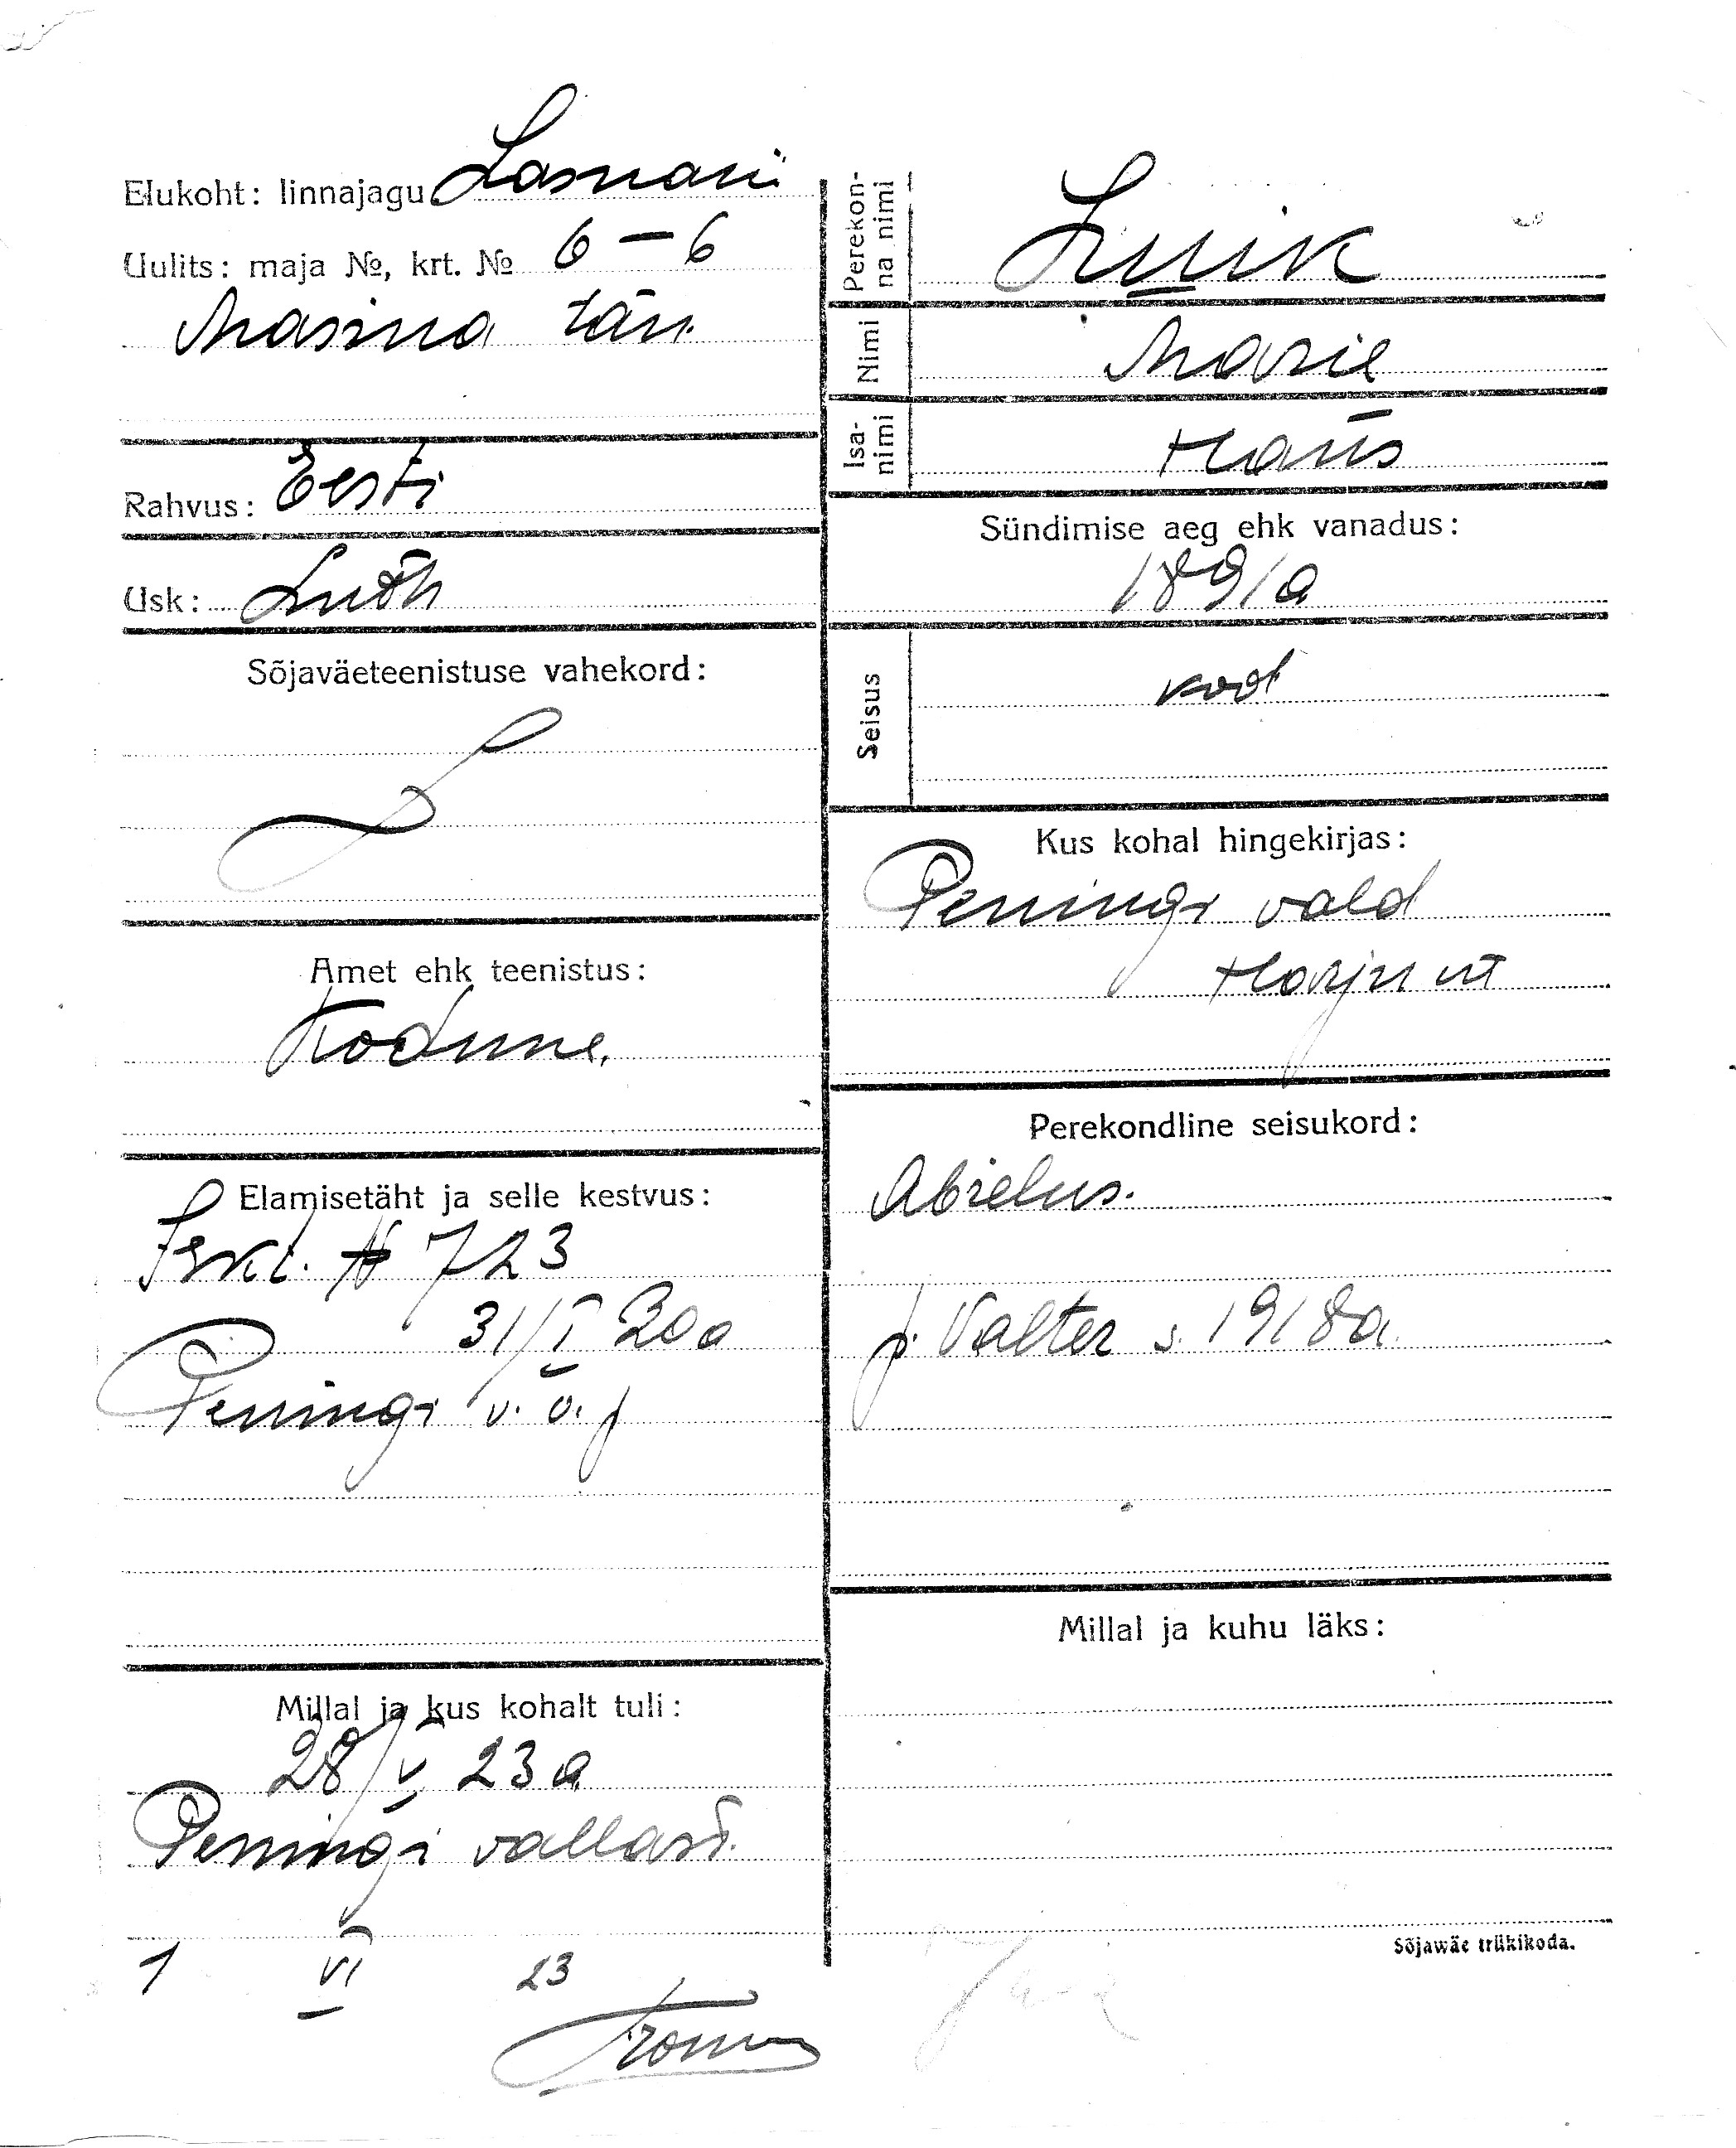 Elukoht: linnajagu Lasnam
Uulits: maja №, krt. № 6 – 6
Masina tän.
Rahvus: Eesti
Usk: Luth
Sõjaväeteenistuse vahekord:
Amet ehk teenistus:
Kodune.
Elamisetäht ja selle kestvus:
Iskt. № 723
31/I 20 a
Peningi v. v. j
Millal ja kus kohalt tuli:
28/V 23 a
Peningi vallast.
1 VI 23
Perekon-
na nimi
Luik
Nimi
Marie
Isa-
nimi
Hans
Sündimise aeg ehk vanadus:
1891 a
Seisus
kod
Kus kohal hingekirjas:
Peningi vald
Harju m
Perekondline seisukord:
Abielus.
p. Valter s. 1918 a.
Millal ja kuhu läks:
Sõjawäe trükikoda.